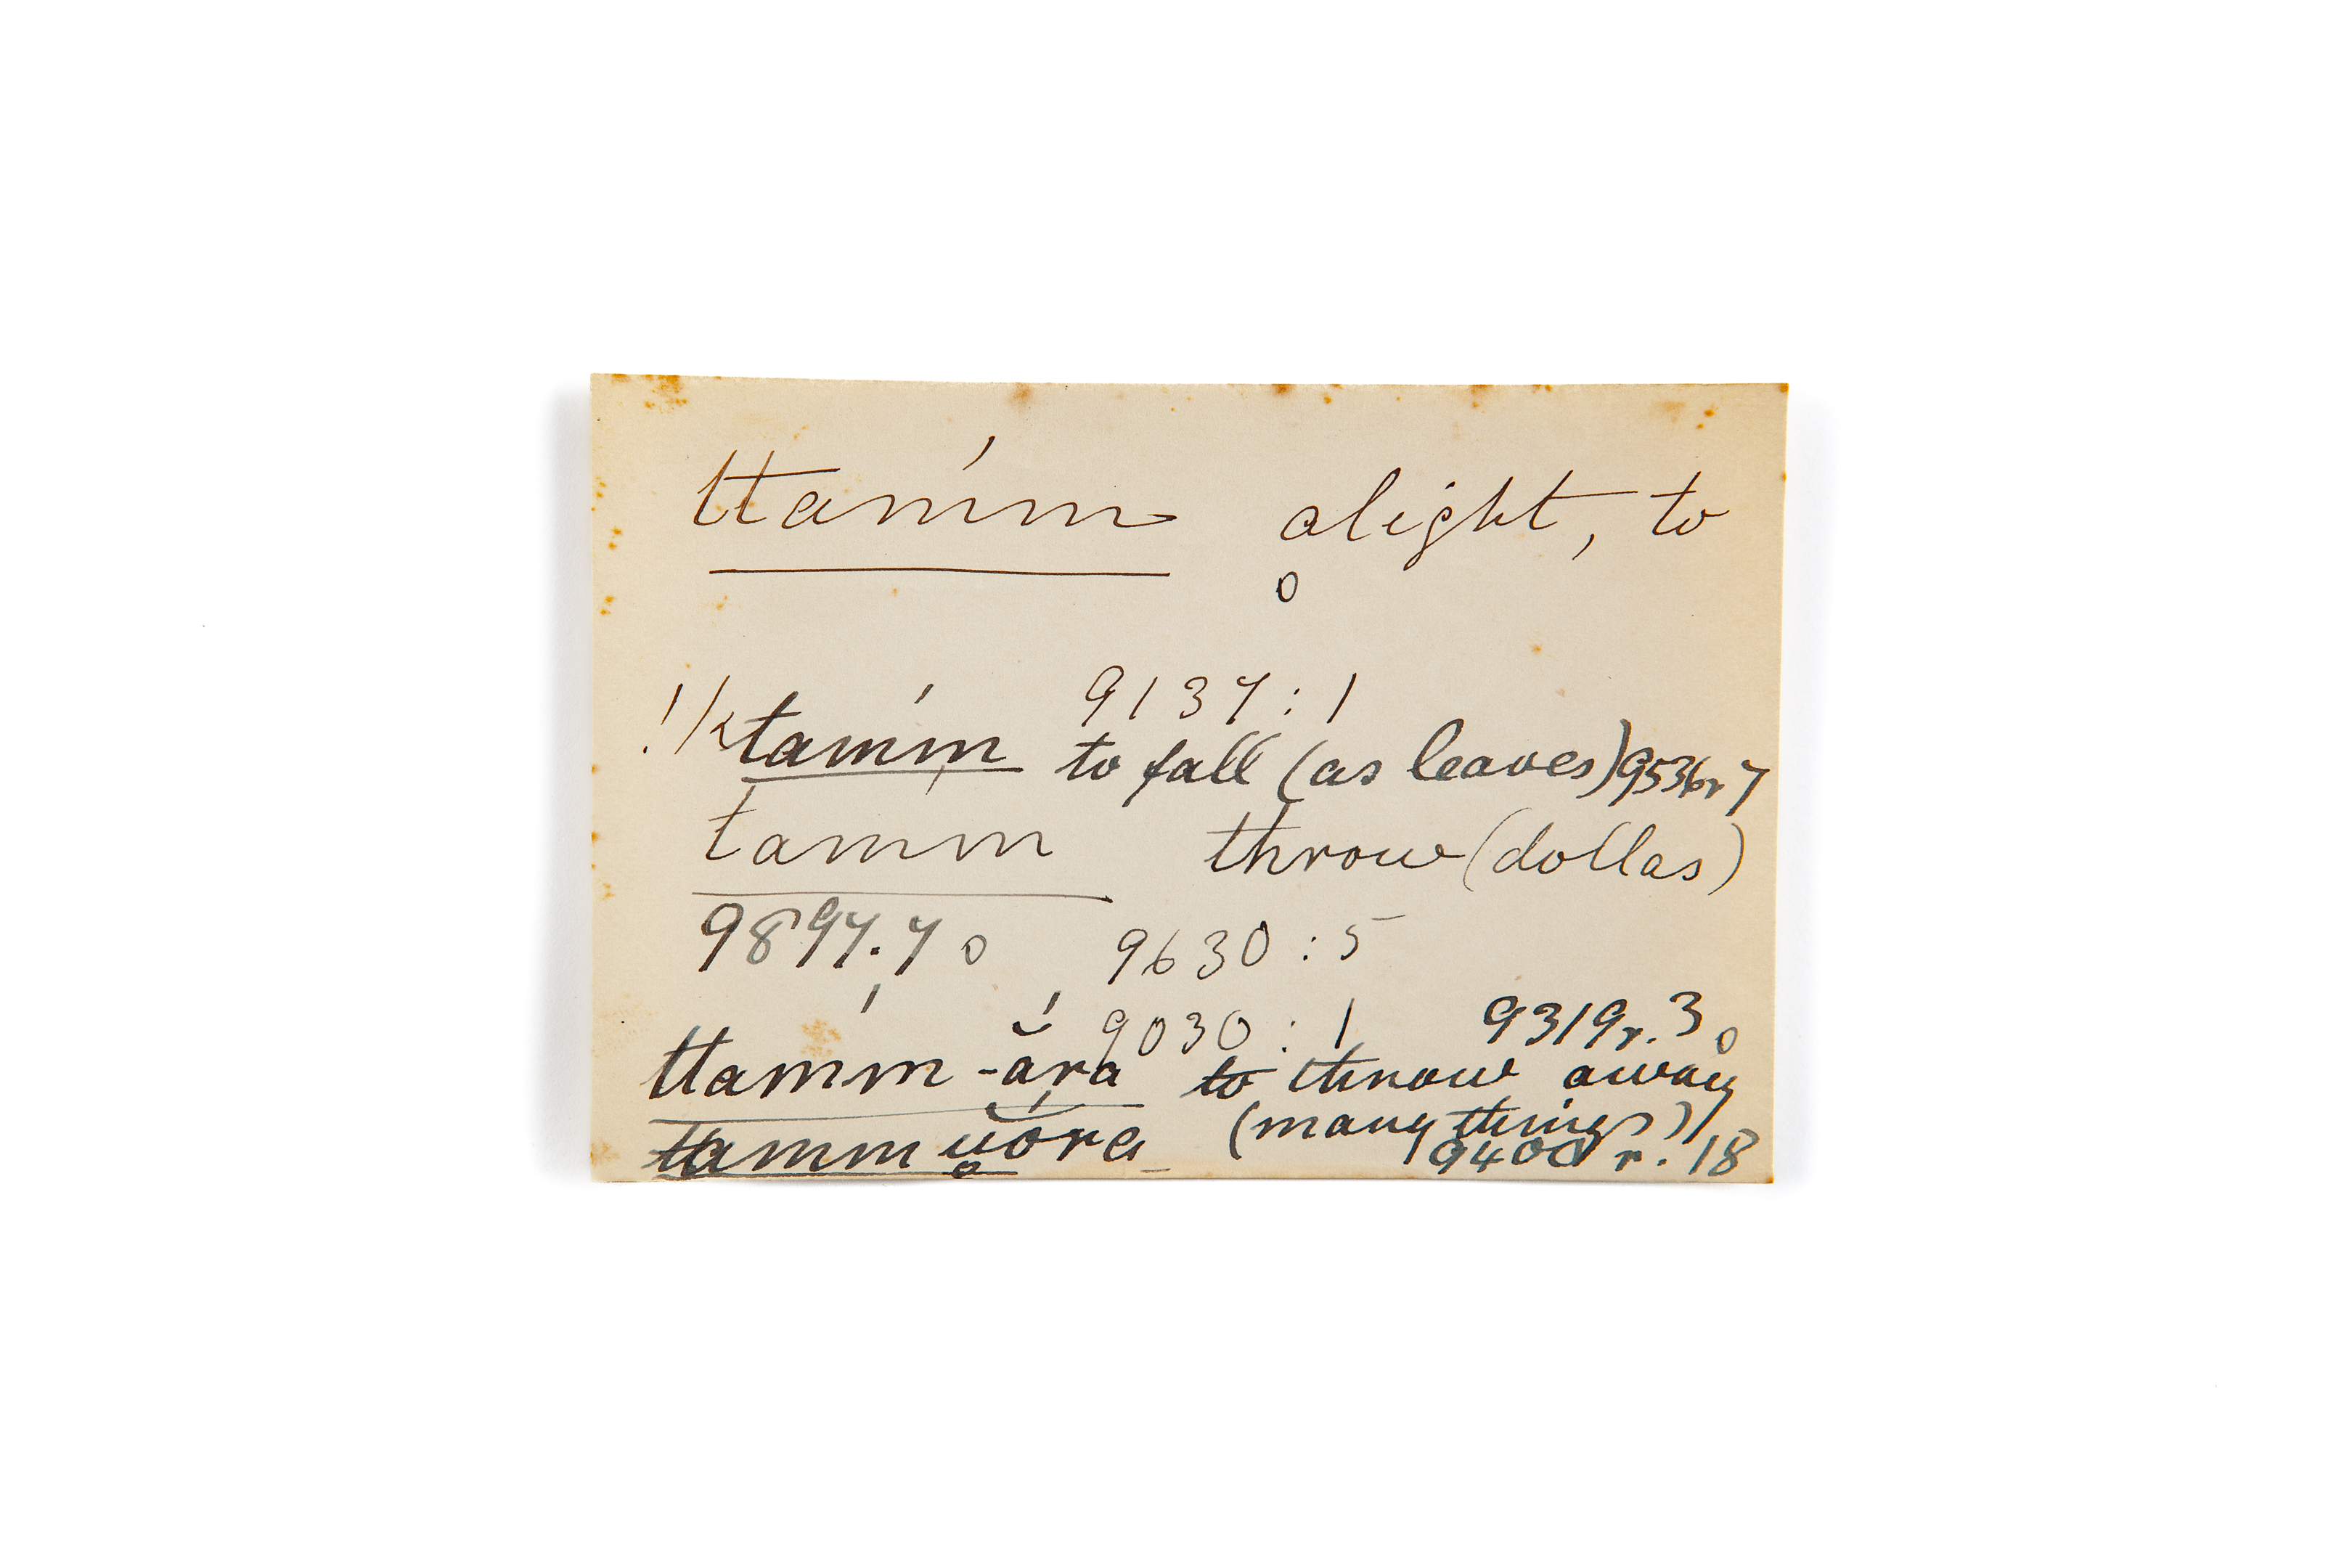 ttam'm alight, to
o
9137 : 1
!/k tam'm to fall (as leaves) 9536r 7
tamm throw (dollas)
9897.7 o 9630 : 5
9030 : 1 9319r. 3 o
ttamm -ắra to throw away
tamm u̯ŏ́ra (many things)
9400 r. 18